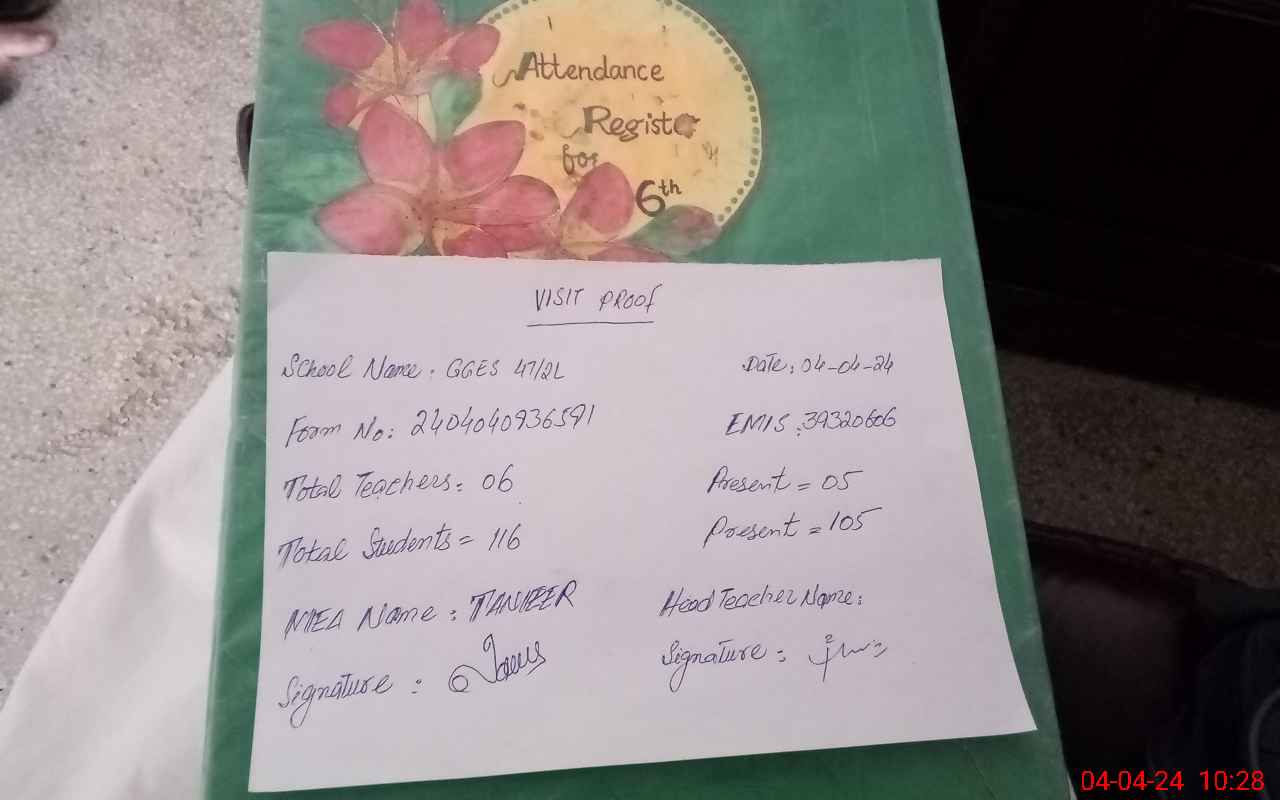 Attendance
Register
for
6th
VISIT PROOF
School Name: GGES 47/2L Date: 04-04-24
Form No: 2404040936591 EMIS: 39320606
Total Teachers: 06 Present = 05
Total Students = 116 Present = 105
MEA Name: Head Teacher Name:
Signature: Signature:
04-04-24 10:28